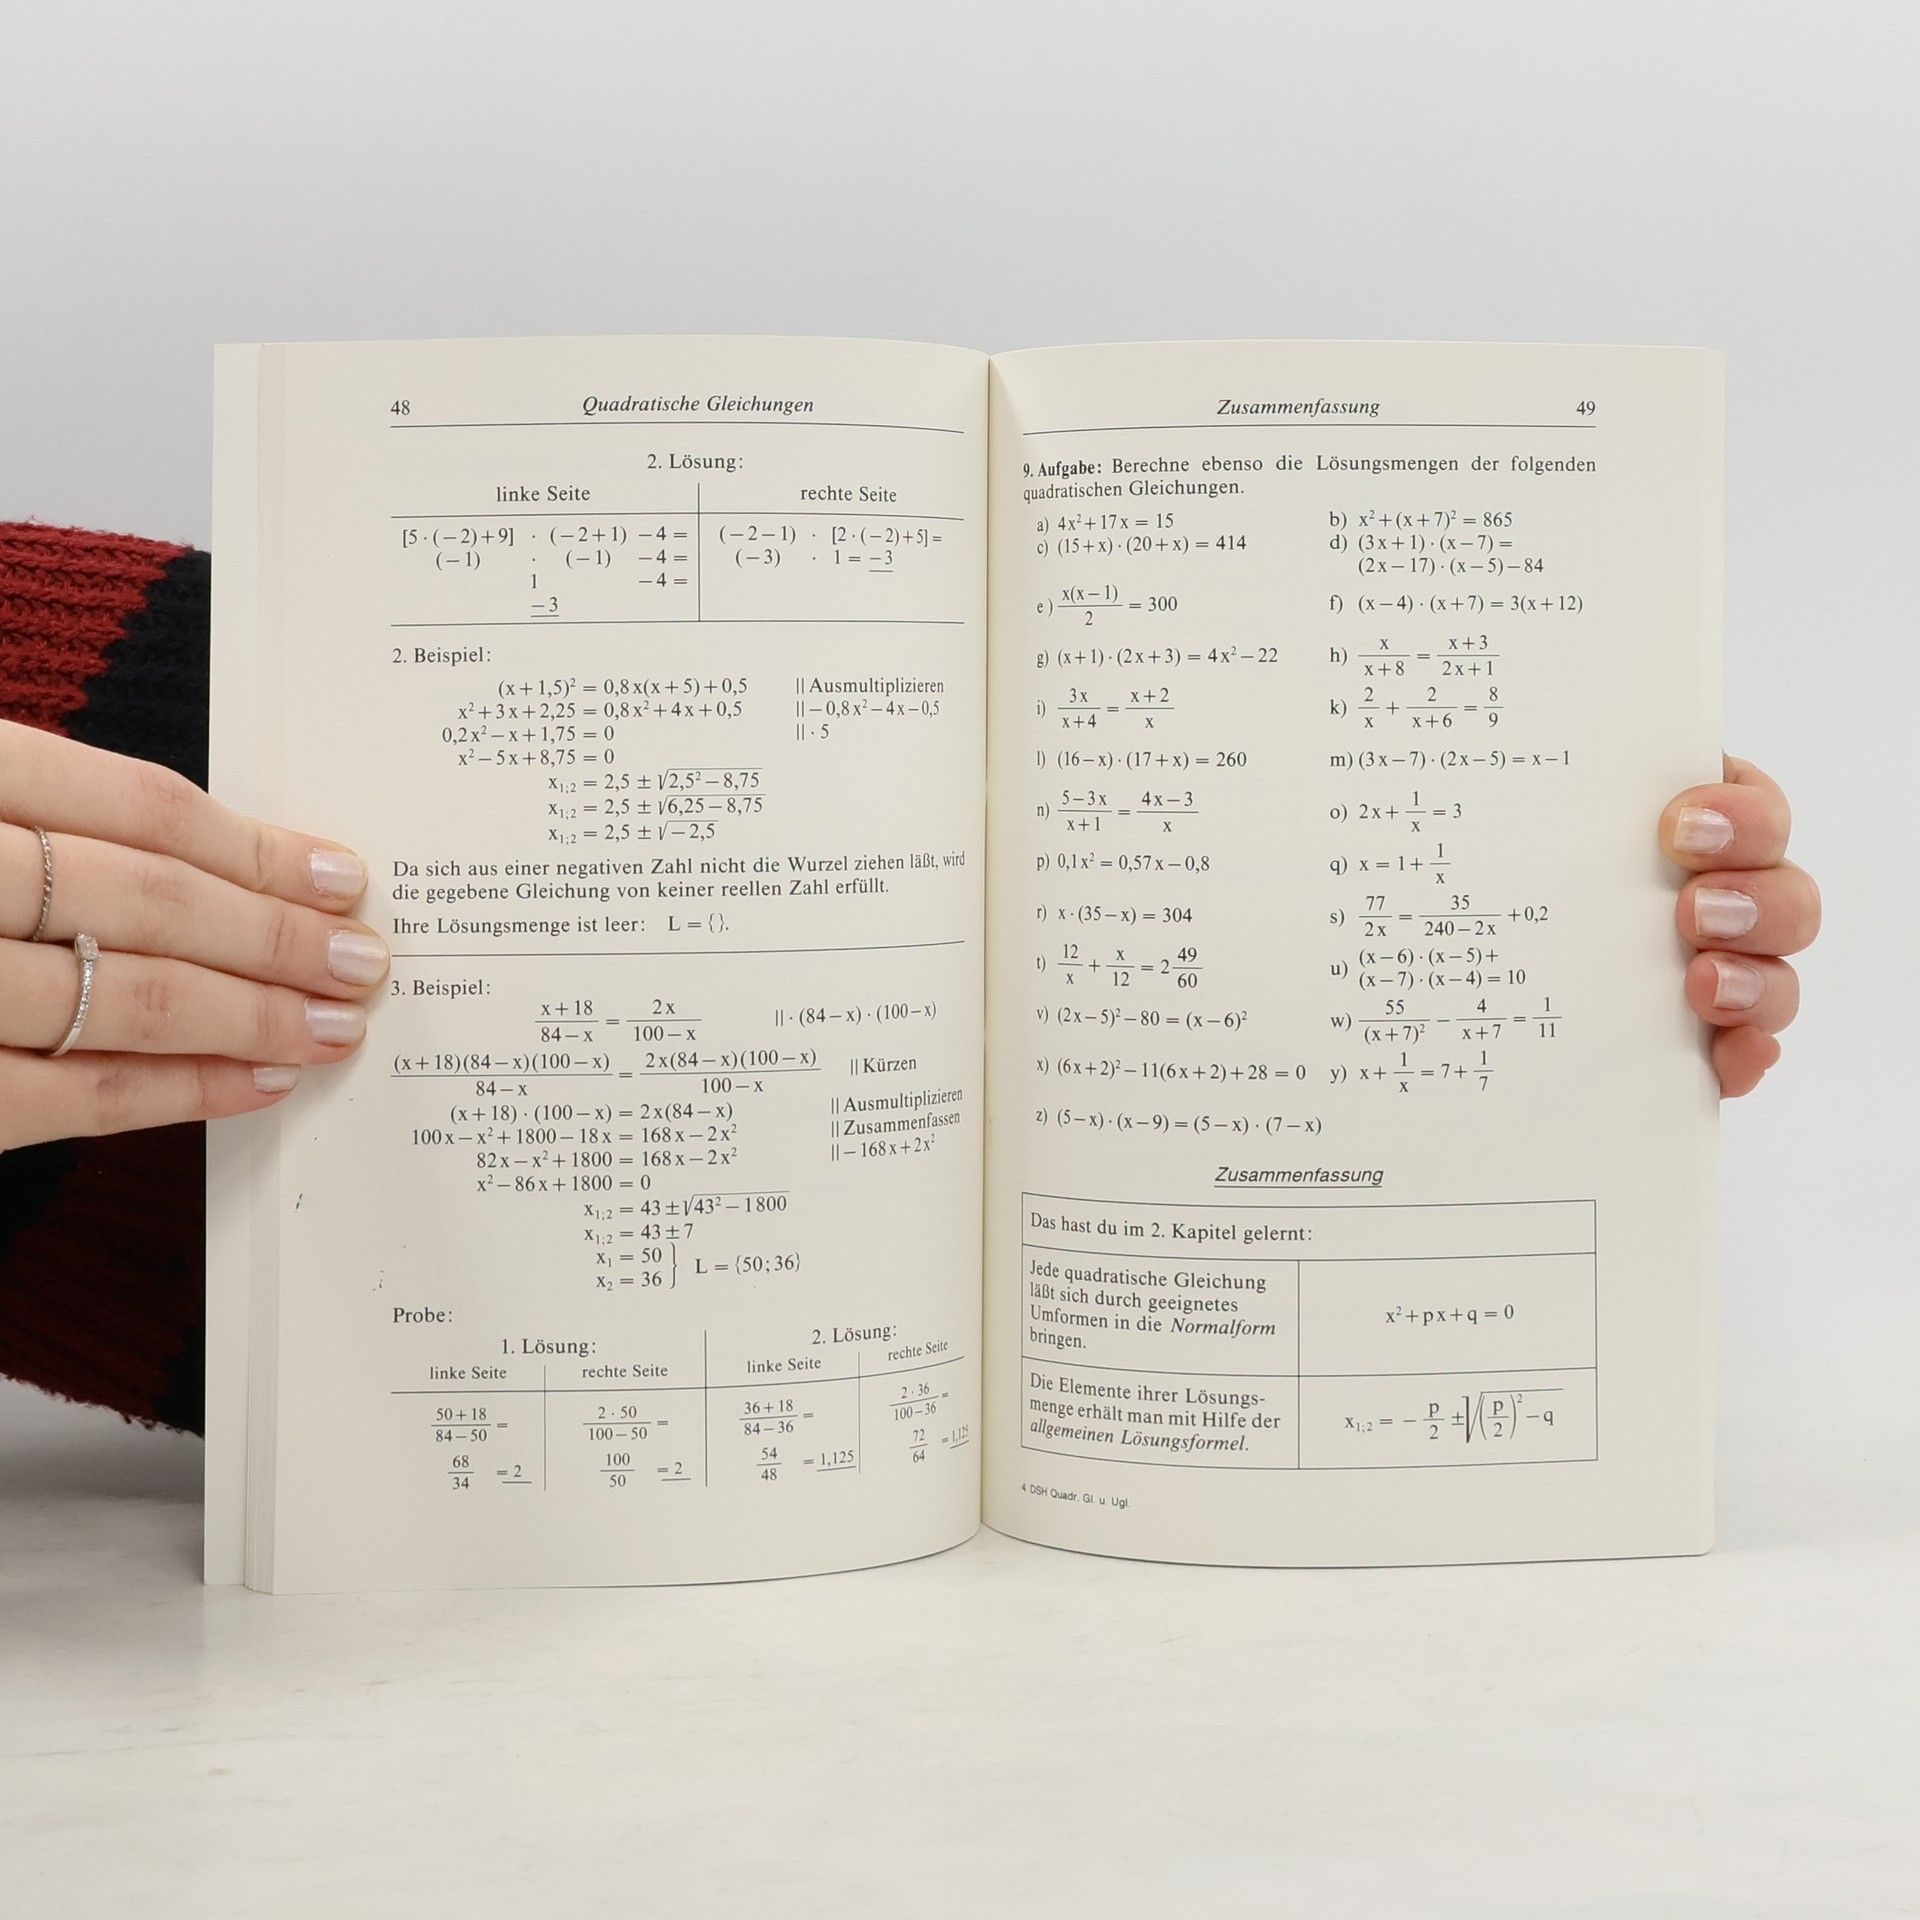 48 Quadratische Gleichungen
2. Lösung:
linke Seite rechte Seite
[5·(−2)+9] · (−2+1) −4 = (−2−1) · [2·(−2)+5] =
(−1) · (−1) −4 = (−3) · 1 = −3
1 −4 =
−3
2. Beispiel:
(x+1,5)² = 0,8x(x+5)+0,5 || Ausmultiplizieren
x²+3x+2,25 = 0,8x²+4x+0,5 || −0,8x²−4x−0,5
0,2x²−x+1,75 = 0 || · 5
x²−5x+8,75 = 0
x₁;₂ = 2,5 ± √(2,5²−8,75)
x₁;₂ = 2,5 ± √(6,25−8,75)
x₁;₂ = 2,5 ± √(−2,5)
Da sich aus einer negativen Zahl nicht die Wurzel ziehen läßt, wird
die gegebene Gleichung von keiner reellen Zahl erfüllt.
Ihre Lösungsmenge ist leer: L = {}.
3. Beispiel:
(x+18)/(84−x) = 2x/(100−x) || · (84−x) · (100−x)
(x+18)(84−x)(100−x)/(84−x) = 2x(84−x)(100−x)/(100−x) || Kürzen
(x+18) · (100−x) = 2x(84−x) || Ausmultiplizieren
100x−x²+1800−18x = 168x−2x² || Zusammenfassen
82x−x²+1800 = 168x−2x² || −168x+2x²
x²−86x+1800 = 0
x₁;₂ = 43 ± √(43²−1800)
x₁;₂ = 43 ± 7
x₁ = 50
x₂ = 36 } L = {50;36}
Probe:
1. Lösung: 2. Lösung:
linke Seite rechte Seite linke Seite rechte Seite
(50+18)/(84−50) = (2·50)/(100−50) = (36+18)/(84−36) = (2·36)/(100−36) =
68/34 = 2 100/50 = 2 54/48 = 1,125 72/64 = 1,125
Zusammenfassung 49
9. Aufgabe: Berechne ebenso die Lösungsmengen der folgenden
quadratischen Gleichungen.
a) 4x²+17x = 15 b) x²+(x+7)² = 865
c) (15+x)·(20+x) = 414 d) (3x+1)·(x−7) =
(2x−17)·(x−5)−84
e) x(x−1)/2 = 300 f) (x−4)·(x+7) = 3(x+12)
g) (x+1)·(2x+3) = 4x²−22 h) x/(x+8) = (x+3)/(2x+1)
i) 3x/(x+4) = (x+2)/x k) 2/x + 2/(x+6) = 8/9
l) (16−x)·(17+x) = 260 m) (3x−7)·(2x−5) = x−1
n) (5−3x)/(x+1) = (4x−3)/x o) 2x+1/x = 3
p) 0,1x² = 0,57x−0,8 q) x = 1+1/x
r) x·(35−x) = 304 s) 77/2x = 35/(240−2x) +0,2
t) 12/x + x/12 = 2 49/60 u) (x−6)·(x−5)+
(x−7)·(x−4) = 10
v) (2x−5)²−80 = (x−6)² w) 55/(x+7)² − 4/(x+7) = 1/11
x) (6x+2)²−11(6x+2)+28 = 0 y) x+1/x = 7+1/7
z) (5−x)·(x−9) = (5−x)·(7−x)
Zusammenfassung
Das hast du im 2. Kapitel gelernt:
Jede quadratische Gleichung
läßt sich durch geeignetes
Umformen in die Normalform
bringen.
x²+px+q = 0
Die Elemente ihrer Lösungs-
menge erhält man mit Hilfe der
allgemeinen Lösungsformel.
x₁;₂ = −p/2 ± √((p/2)²−q)
4 DSH Quadr. Gl. u. Ugl.